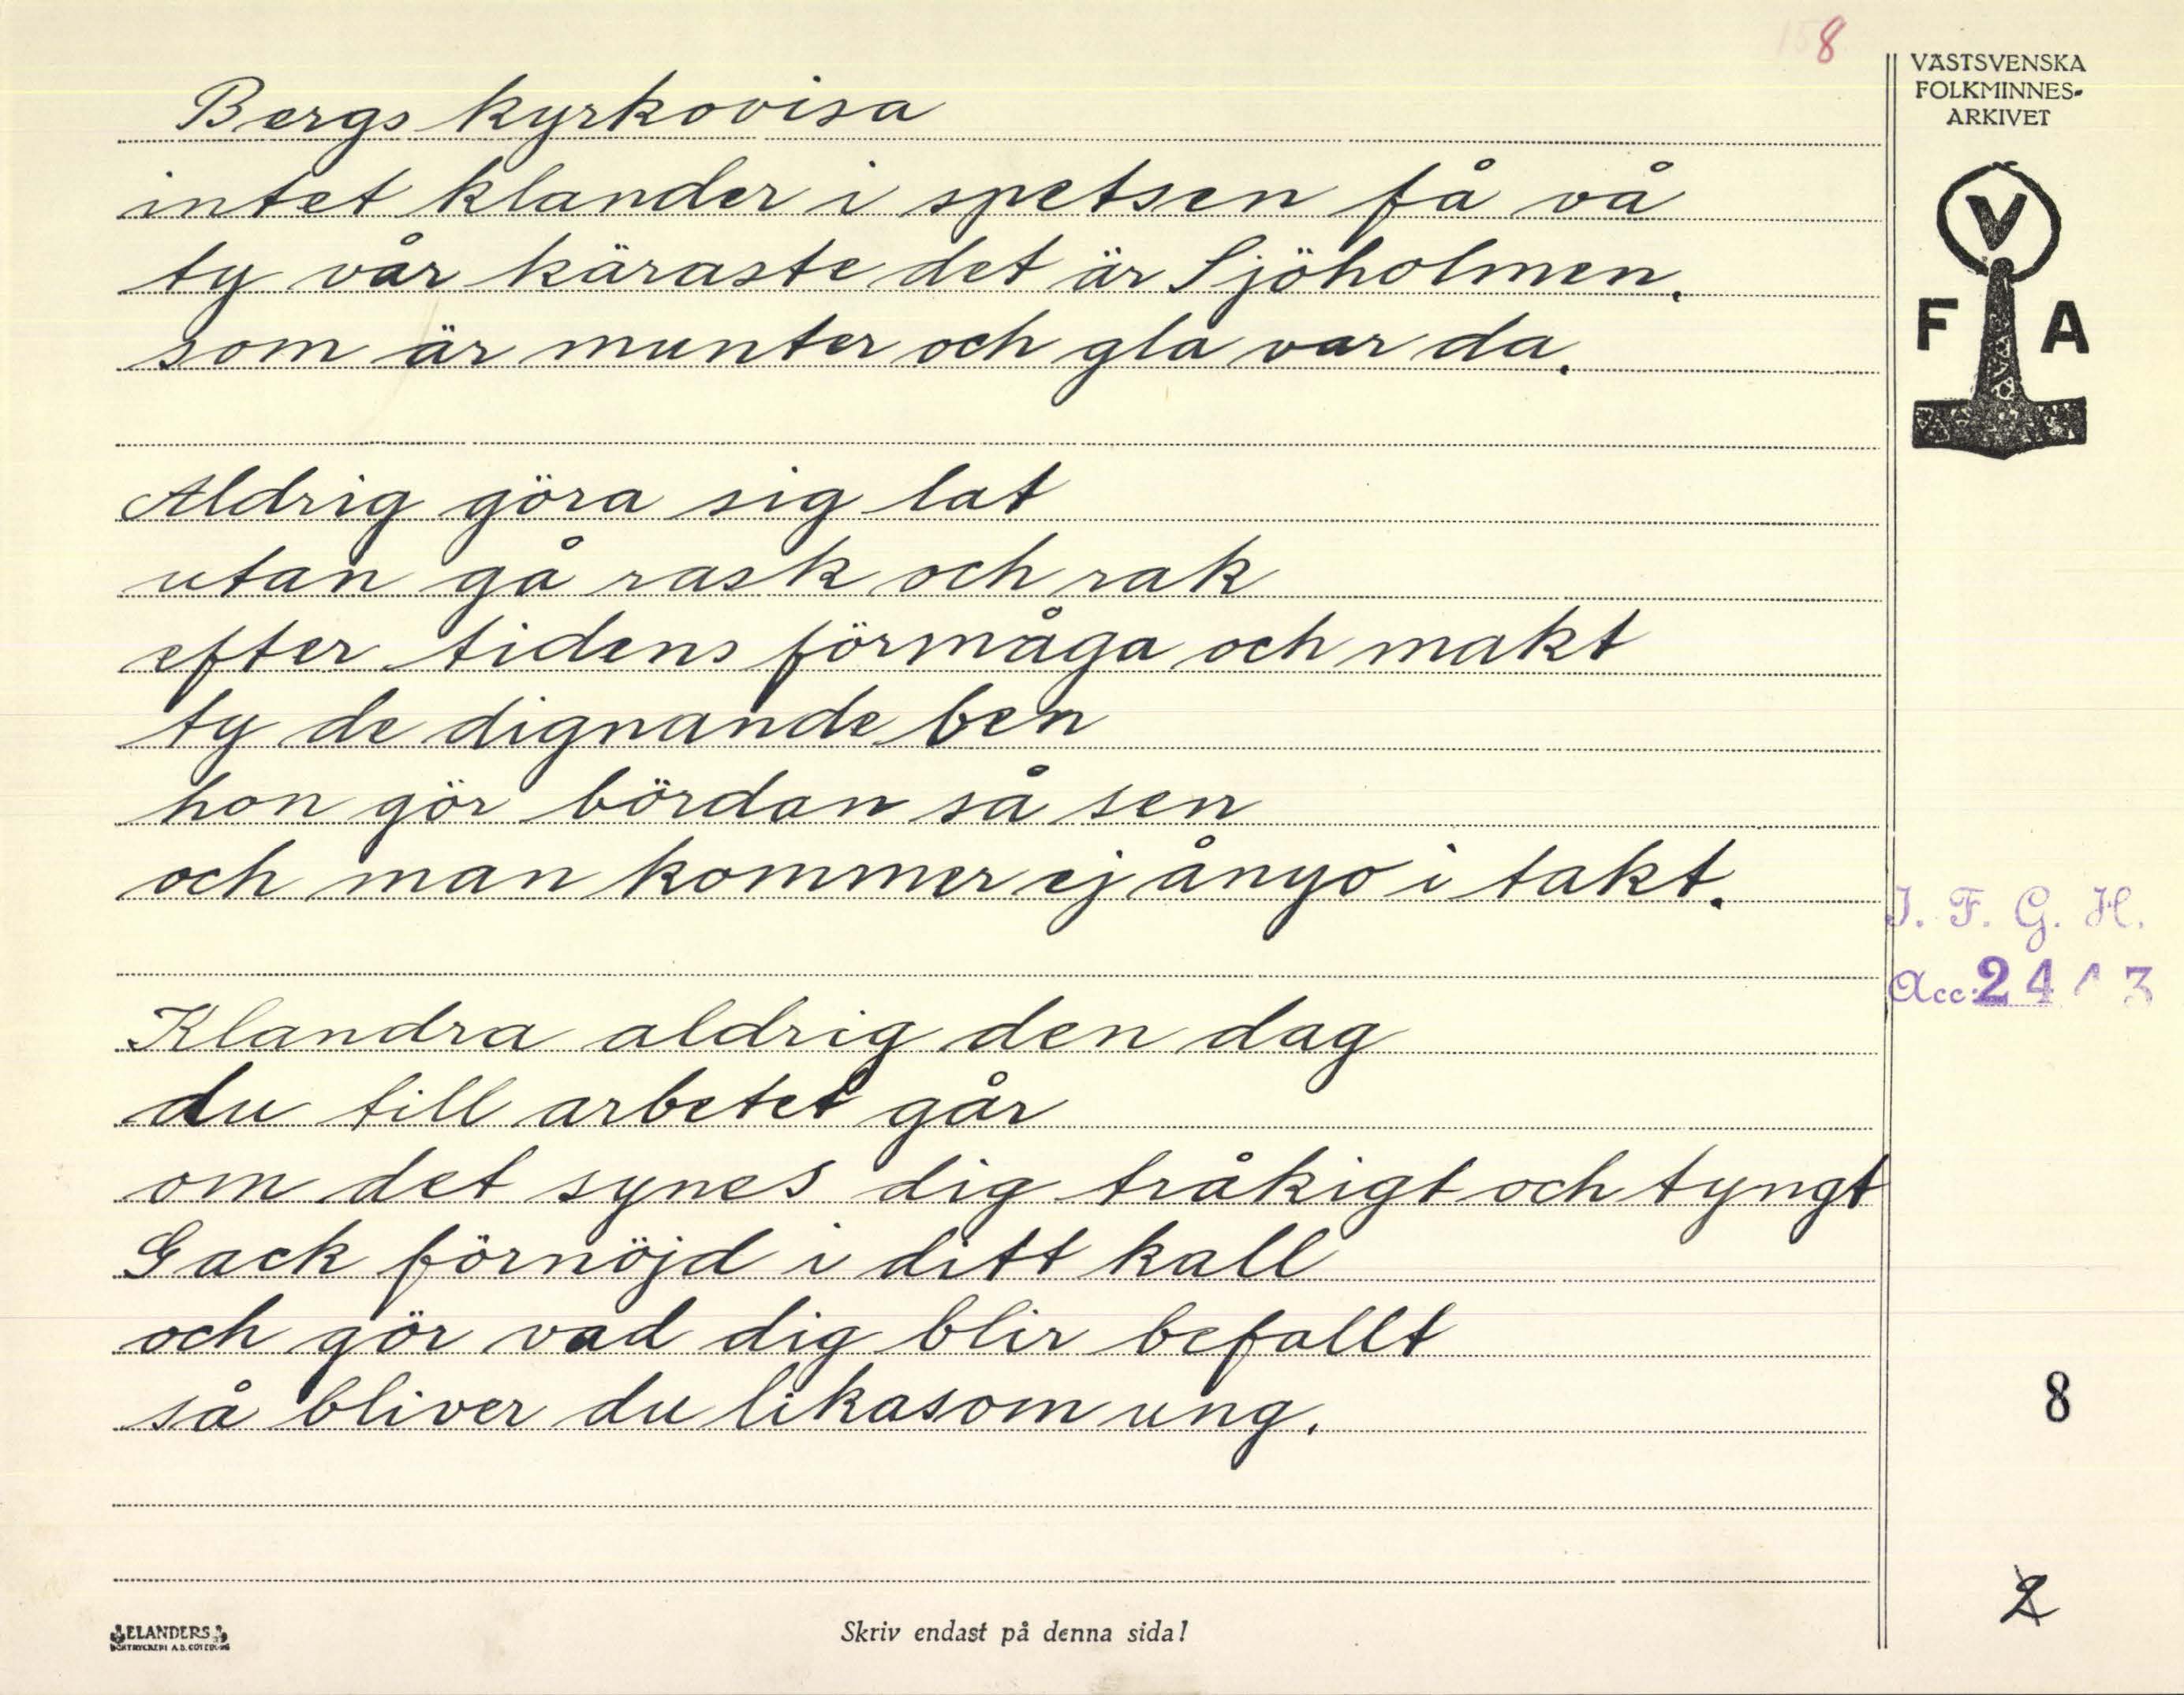 158
VÄSTSVENSKA
FOLKMINNES-
ARKIVET
V
F A
Bergs kyrkovisa
intet klander i spetsen få vå
ty vår käraste det är Sjöholmen.
som är munter och gla var da.
Aldrig göra sig lat
utan gå rask och rak
efter tidens förmåga och makt
ty de dignande ben
hon gör bördan så sen
och man kommer ej ånyo i takt.
I. F. G. H.
Acc: 24 3
Klandra aldrig den dag
du till arbetet går
om det synes dig tråkigt och tyngt
Gack förnöjd i ditt kall
och gör vad dig blir befallt
så bliver du likasom ung.
8
2
ELANDERS
BOKTRYCKERI A.B. GÖTEBORG
Skriv endast på denna sida!